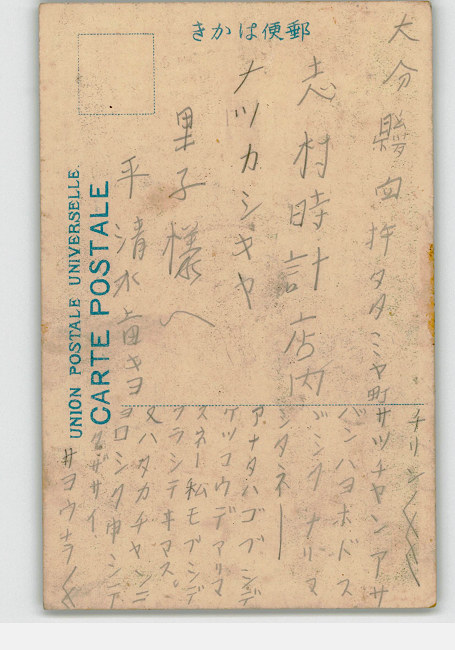 きかは便郵
UNION POSTALE UNIVERSELLE.
CARTE POSTALE
大分縣
タミヤ町
志村時計店内
ナツカシキヤ
里子様へ
平清水
キヨ
チリン〱〱
サツチヤンアサ
バンハヨホドス
ズシクナリマ
シタネー
アナタハゴブジデ
ケツコウデアリマ
スネー私モブジデ
クラシテ井マス。
又ハタカチヤンニ
ヨロシク申シテ
クダサイ
サヨウナラ〱